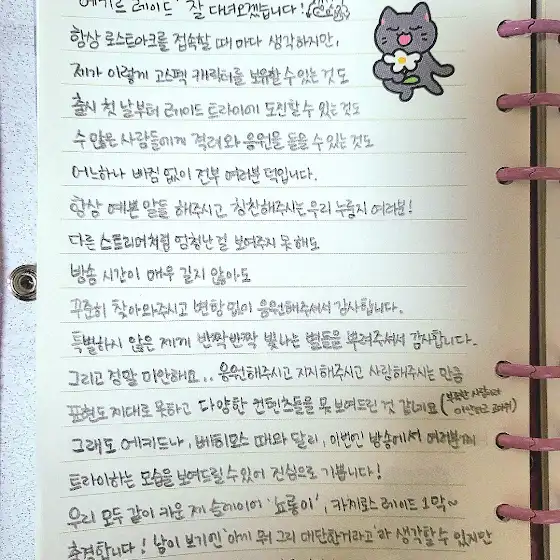 '에키르 레이드' 잘 다녀오겠습니다!
항상 로스트아크를 접속할 때 마다 생각하지만,
제가 이렇게 고스펙 캐릭터를 보유할 수 있는 것도
출시 첫 날부터 레이드 트라이에 도전할 수 있는 것도
수 많은 사람들에게 격려와 응원을 들을 수 있는 것도
어느하나 빠짐 없이 전부 여러분 덕입니다.
항상 예쁜 말들 해주시고 칭찬해주시는 우리 누룽지 여러분!
다른 스트리머처럼 엄청난 걸 보여주지 못 해도
방송 시간이 매우 길지 않아도
꾸준히 찾아와주시고 변함 없이 응원해주셔서 감사합니다.
특별하지 않은 제게 반짝반짝 빛나는 별들을 뿌려주셔서 감사합니다.
그리고 정말 미안해요... 응원해주시고 지지해주시고 사랑해주시는 만큼
표현도 제대로 못하고 다양한 컨텐츠들을 못 보여드린 것 같네요 (부족한 사람이라
미안하고
그래도 에키드나, 베히모스 때와 달리, 이번엔 방송에서 여러분께
트라이하는 모습을 보여드릴 수 있어 진심으로 기쁩니다!
우리 모두 같이 키운 제 슬레이어 '뇨롱이', 카제로스 레이드 1막~
출격합니다! 남이 보기엔 '아끼 뭐 그리 대단한거라고'라 생각할 수 있지만